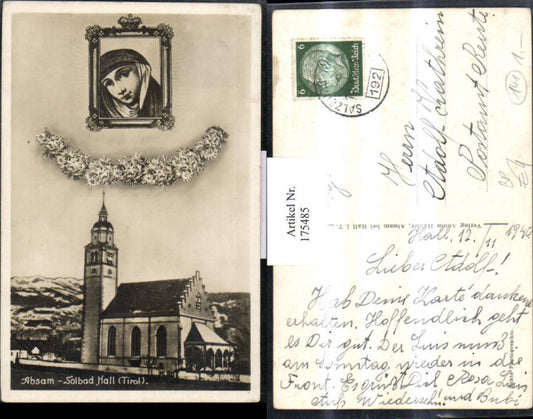 Absam - Solbad Hall (Tirol).
Artikel Nr.
175485
6
6
Deutsches Reich
SALZ
192
1.-
Herrn
Adolf
Verlag Anton Hölder, Absam bei Hall i. T.
Hall, 12./11 1940
Lieber Adolf!
Hab Deine Karte dankend
erhalten. Hoffendlich geht
es Dir gut. Der Luis muß
am Sonntag wieder in die
Front. Es grüßt Dich Rosa Luis
auf Wiedersehn! und Bubi